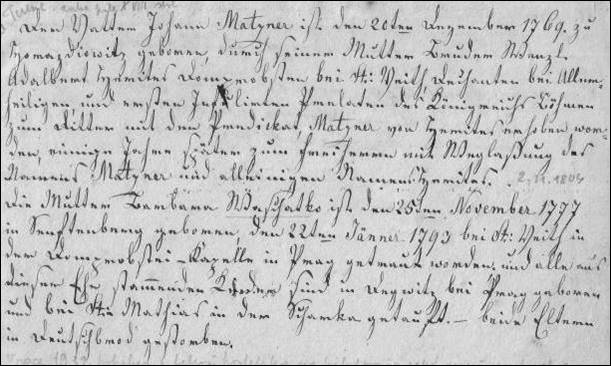 Der Vatter Johann Matzner ist den 20ten Dezember 1769. zu
geboren, durch seiner Mutter Bruder Wenzl
Adalbert Herites Domprobsten bei St: Veith Dechanten bei Allen-
heiligen, und ersten Infulirten Prelaten des Königreichs Böhmen
zum Ritter mit den Predickat, Matzner von Herites erhoben wor-
den, einige Jahre später zum Freiherrn mit Weglaßung des
Namens Matzner und alleinigen Namens Herites. 1804
Die Mutter Barbara ist den 25ten November 1777
in Senftenberg geboren, den 22ten Jänner 1793 bei St: Veith in
der Domprobstei-Kapelle in Prag getraut worden. und alle aus
dieser Ehe stammenden Kinder sind in bei Prag geboren
und bei St: Mathias in der Scharka getauft. – beide Eltern
in Deutschbrod gestorben.